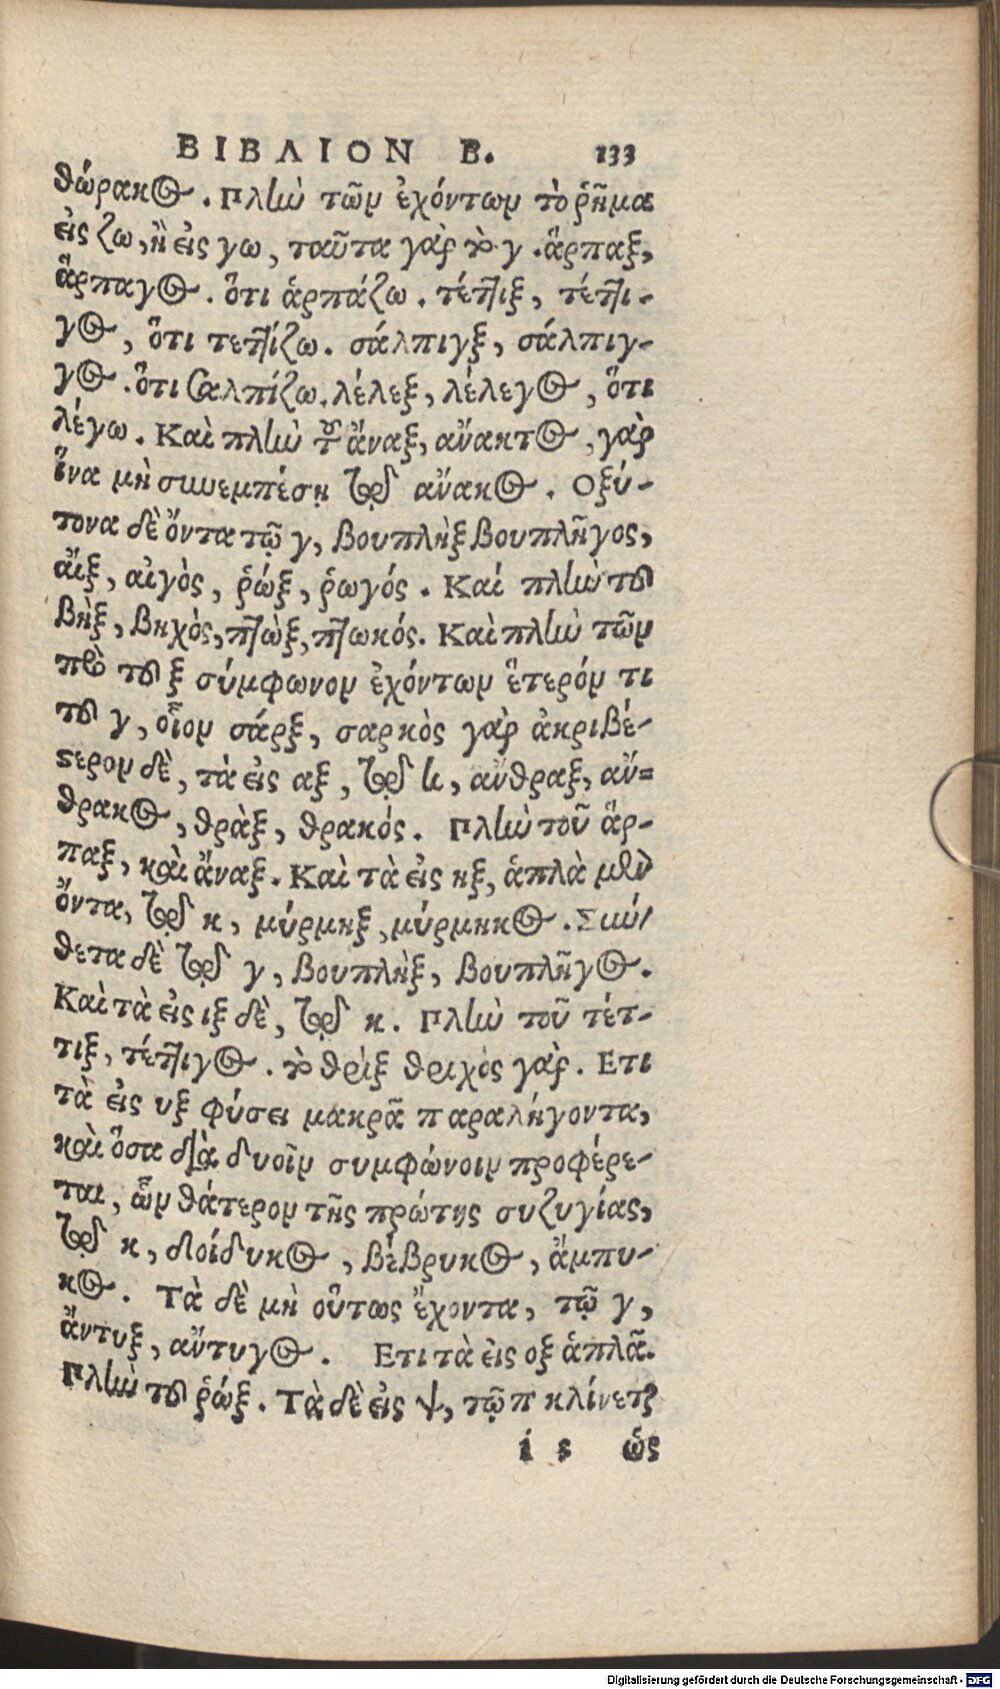 ΒΙΒΛΙΟΝ Β. 133
θώρακος. Πλὴν τῶν ἐχόντων τὸ ῥῆμα
εἰς ζω, ἢ εἰς γω, ταῦτα γὰρ τὸ γ. ἅρπαξ,
ἅρπαγος. ὅτι ἁρπάζω. τέττιξ, τέττι-
γος, ὅτι τεττίζω. σάλπιγξ, σάλπιγ-
γος. ὅτι σαλπίζω. λέλεξ, λέλεγος, ὅτι
λέγω. Καὶ πλὴν τοῦ ἄναξ, ἄνακτος, γὰρ
ἵνα μὴ συνεμπέσῃ τῷ ἄνακος. Οξύ-
τονα δὲ ὄντα τῷ γ, βουπλὴξ βουπλῆγος,
αἴξ, αἰγὸς, ῥώξ, ῥωγός. Καί πλὴν τοῦ
βὴξ, βηχὸς, πτὼξ, πτωκός. Καὶ πλὴν τῶν
πρὸ τοῦ ξ σύμφωνον ἐχόντων ἕτερόν τι
τοῦ γ, οἷον σάρξ, σαρκὸς γὰρ ἀκριβέ-
στερον δὲ, τὰ εἰς αξ, τῷ κ, ἄνθραξ, ἄν=
θρακος, θρὰξ, θρακός. Πλὴν τοῦ ἅρ-
παξ, καὶ ἄναξ. Καὶ τὰ εἰς ηξ, ἁπλὰ μὲν
ὄντα, τῷ κ, μύρμηξ, μύρμηκος. Σύν/
θετα δὲ τῷ γ, βουπλὴξ, βουπλῆγος.
Καὶ τὰ εἰς ιξ δὲ, τῷ κ. Πλὴν τοῦ τέτ-
τιξ, τέττιγος. τὸ θρὶξ θριχὸς γὰρ. Ετι
τὰ εἰς υξ φύσει μακρᾷ παραλήγοντα,
καὶ ὅσα διὰ δυοῖν συμφώνοιν προφέρε-
ται, ὧν θάτερον τῆς πρώτης συζυγίας,
τῷ κ, δοίδυκος, βέβρυκος, ἄμπυ-
κος. Τὰ δὲ μὴ οὕτως ἔχοντα, τῷ γ,
ἄντυξ, ἄντυγος. Ετι τὰ εἰς οξ ἁπλᾶ.
Πλὴν τοῦ ῥώξ. Τὰ δὲ εἰς ψ, τῷ π κλίνεται
i 5 ὡς
Digitalisierung gefördert durch die Deutsche Forschungsgemeinschaft - DFG